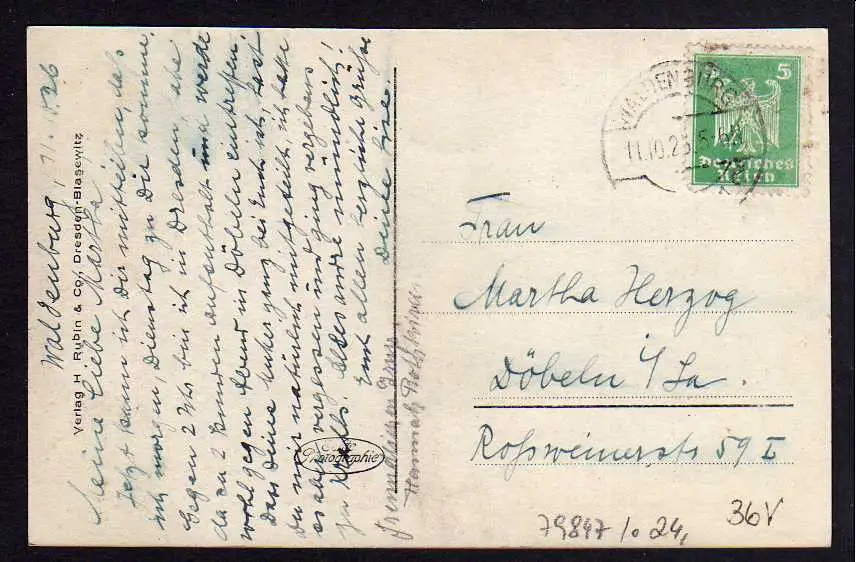 Waldenburg, 11.X.26
Meine liebe Martha
Jetzt kann ich Dir mitteilen, daß
ich morgen, Dienstag zu Dir komme.
Gegen 2 Uhr bin ich in Dresden, habe
da ca 2 Stunden Aufenthalt und werde
wohl gegen Abend in Döbeln eintreffen.
Dass Deine bei Euch ist, hast
Du mir natürlich mitgeteilt, ich hatte
es aber vergessen und ging vergebens
zu Alles andre mündlich!
Euch allen herzliche Grüße
Deine
Verlag H. Rubin & Co., Dresden-Blasewitz
Echte
Photographie
WALDENBURG
11.10.26
5
Deutsches
Reich
Frau
Martha Herzog
Döbeln i/Sa.
Roßweinerstr 59 I
79847/0 24,
36V